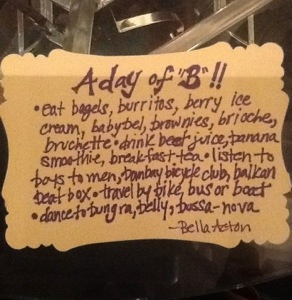 A day of "B"!!
•eat bagels, burritos, berry ice
cream, babybel, brownies, brioche,
bruchette • drink beet juice, banana
smoothie, breakfast tea. • listen to
boys to men, bombay bicycle club, balkan
beat box • travel by bike, bus or boat
• dance to bungra, belly, bossa-nova
—Bella Aston